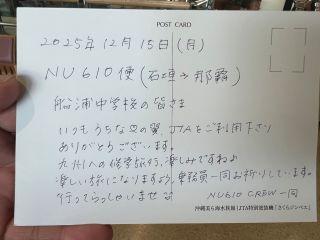 POST CARD
2025年12月15日(月)
NU610便(石垣→那覇)
船浦中学校の皆さま
いつもうちなーの翼、JTAをご利用下さり
ありがとうございます。
九州への修学旅行、楽しみですね♪
楽しい旅になりますよう、乗務員一同お祈りしています。
行ってらっしゃいませ
NU610 CREW一同
沖縄美ら海水族館×JTA特別塗装機「さくらジンベエ」